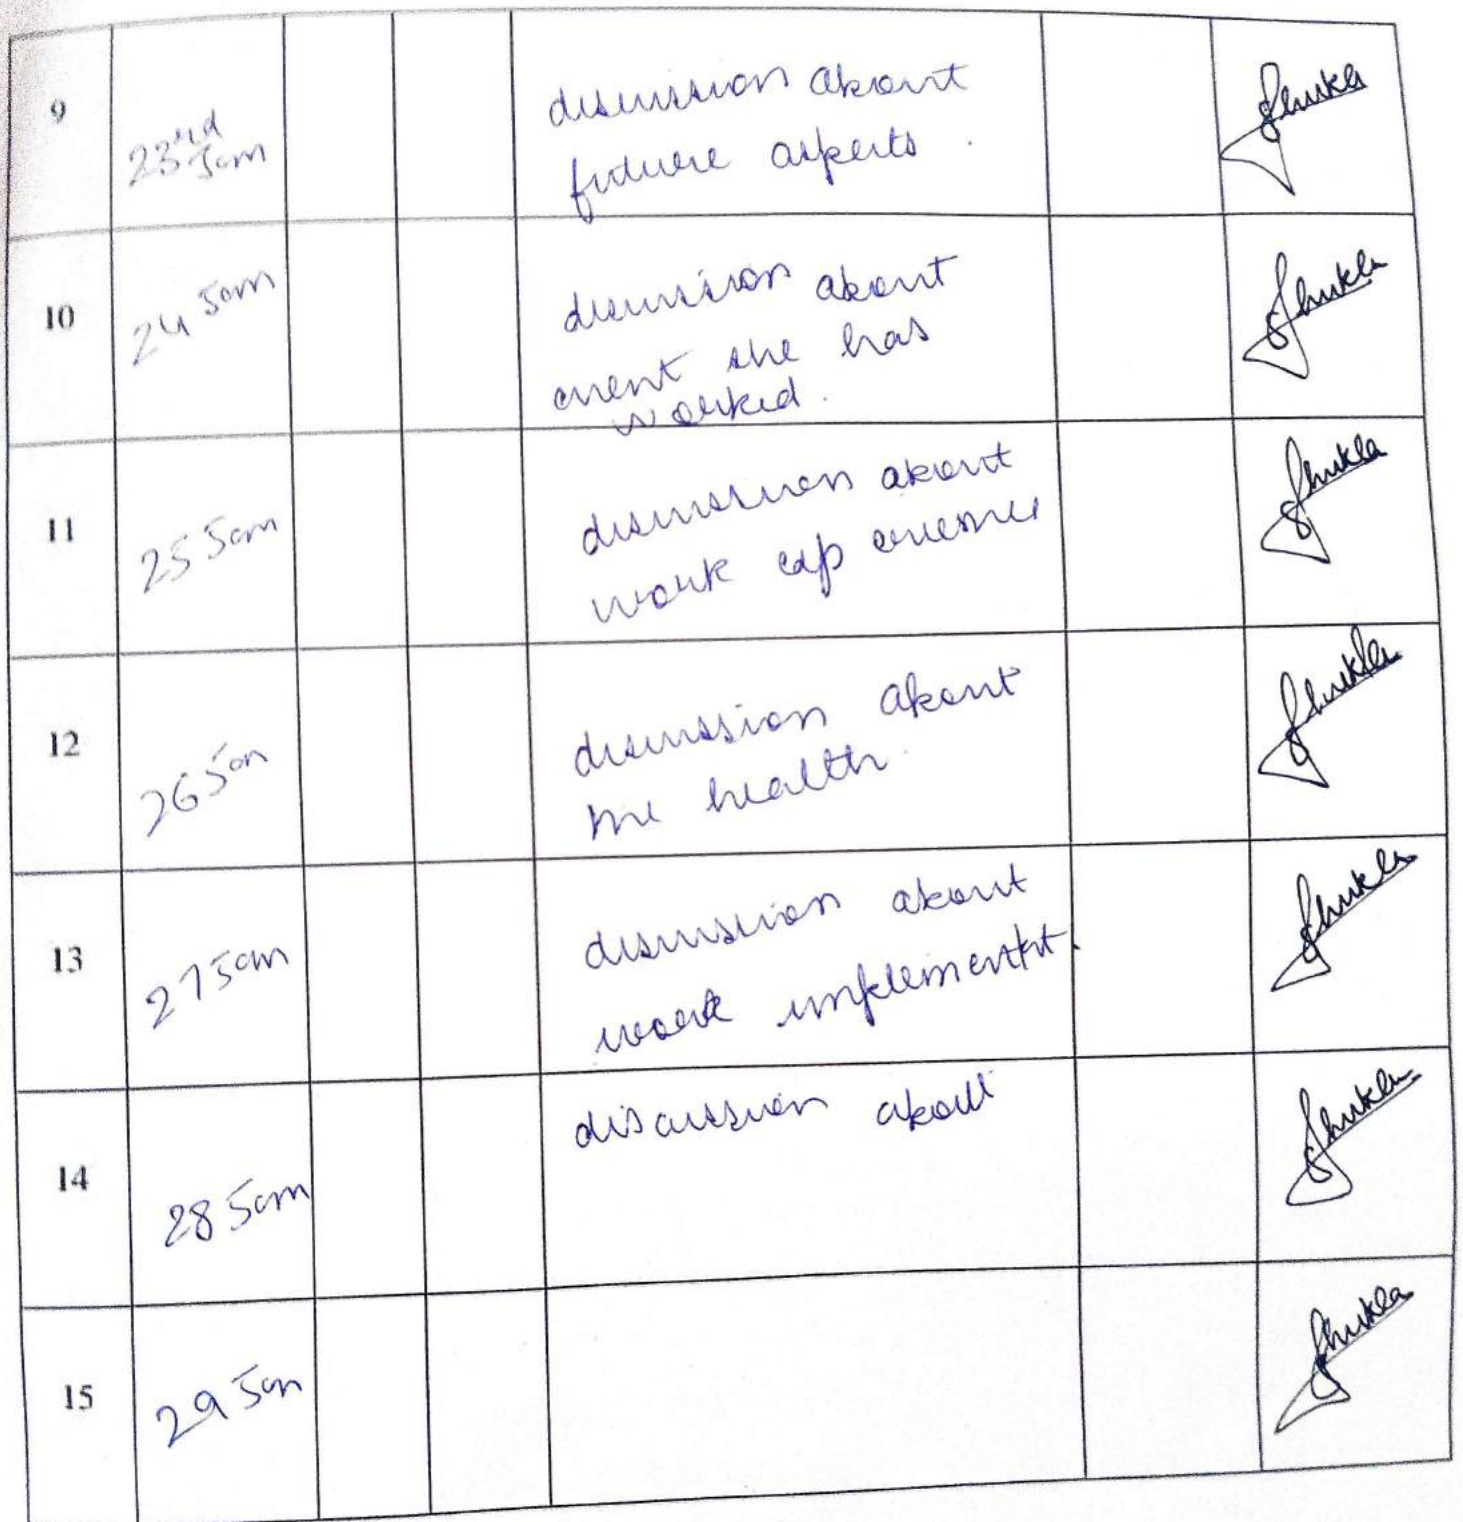 9
23rd Jan
discussion about
future aspects.
Shukla
10
24 Jan
discussion about
event she has
worked.
Shukla
11
25 Jan
discussion about
work exp
Shukla
12
26 Jan
discussion about
health.
Shukla
13
27 Jan
discussion about
work implementat.
Shukla
14
28 Jan
discussion about
Shukla
15
29 Jan
Shukla